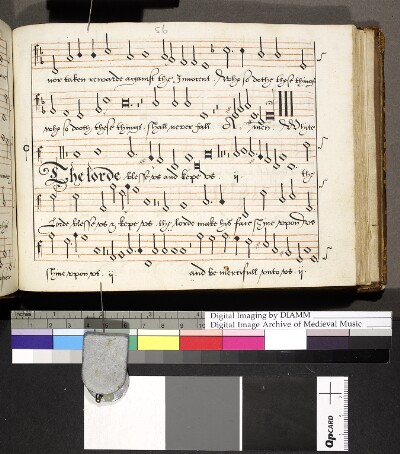 56
nor taken rewarde against the Innocent. Who so dothe these things
Who so dooth these things. shall never fall A men. White
The lorde blesse vs and kepe vs ij the
Lorde blesse vs & kepe vs the lorde make his face shyne vppon vs
shyne vpon vs. ij and be mercifull vnto vs. ij
inches 1 2 3 4
Digital Imaging by DIAMM
Digital Image Archive of Medieval Music
QPCARD